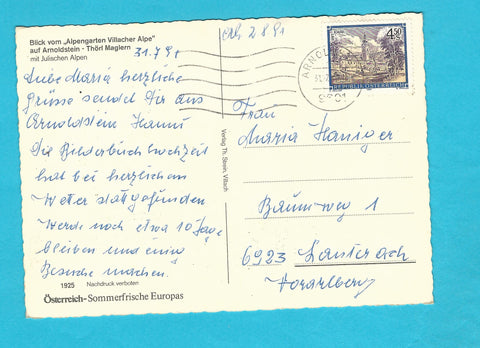 Blick vom „Alpengarten Villacher Alpe"
auf Arnoldstein - Thörl Maglern
mit Julischen Alpen
31.7.91
Liebe Maria herzliche
Grüsse sendet Dir aus
Arnoldstein Hanni
Die Bilderbuch hochzeit
hat bei herzlichem
Wetter stattgefunden
Werde noch etwa 10 Tage
bleiben und einig
Besuche machen.
1925 Nachdruck verboten
Österreich-Sommerfrische Europas
Verlag Th. Swein, Villach
2 8 91
4.50
REPUBLIK ÖSTERREICH
ARNOL
Frau
Maria Haniger
Baumweg 1
6923 Lauterach
Vorarlberg